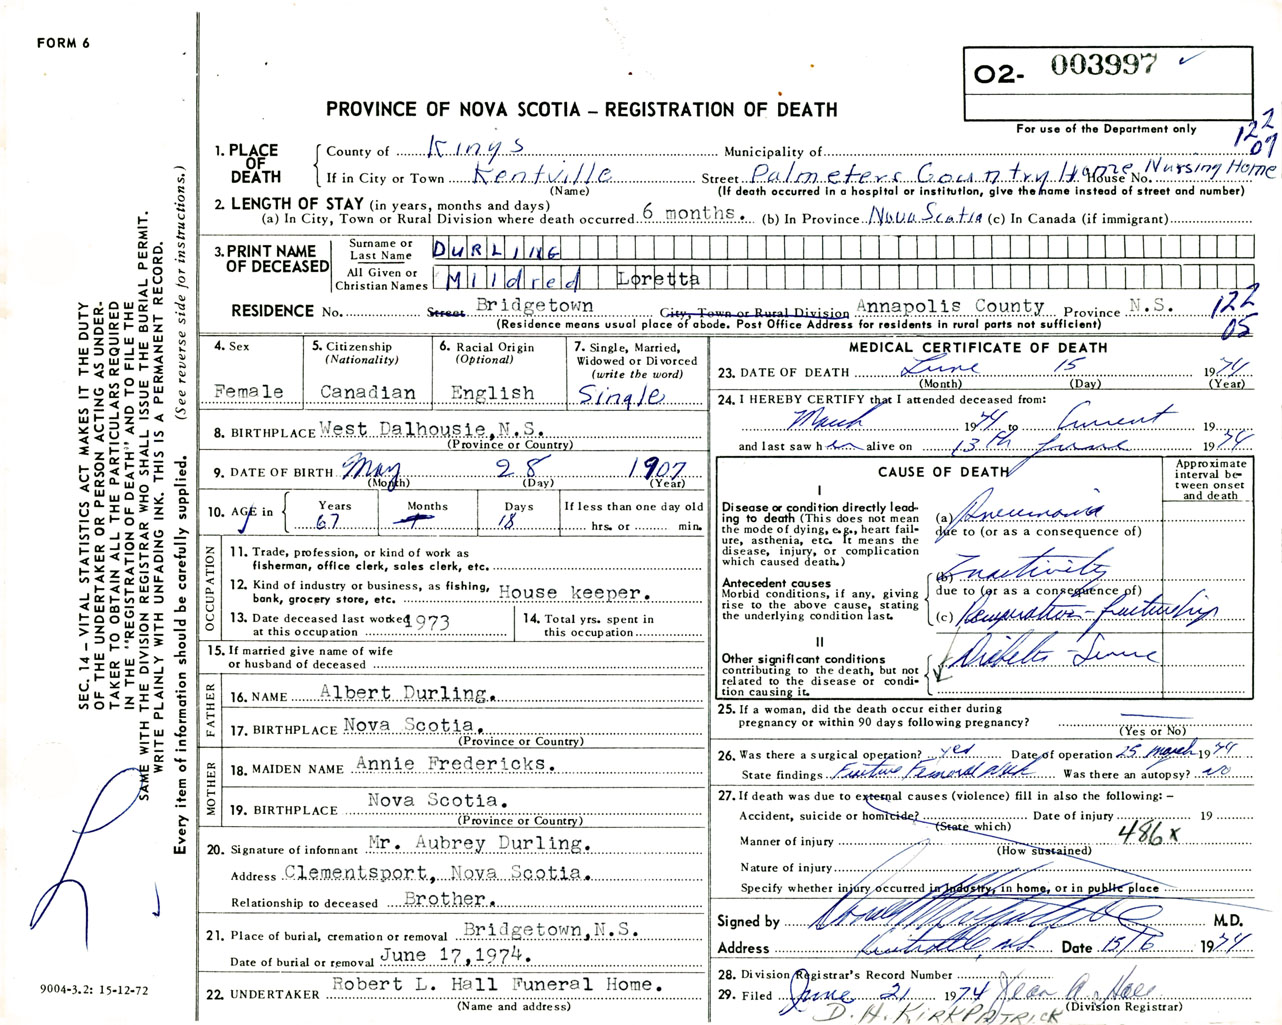 FORM 6
O2- 003997 ✓
For use of the Department only
PROVINCE OF NOVA SCOTIA – REGISTRATION OF DEATH
122
07
1. PLACE OF DEATH
County of Kings Municipality of
If in City or Town Kentville Street Palmeters Country Home Nursing Home House No.
(Name) (If death occurred in a hospital or institution, give the name instead of street and number)
2. LENGTH OF STAY (in years, months and days)
(a) In City, Town or Rural Division where death occurred 6 months. (b) In Province Nova Scotia (c) In Canada (if immigrant)
3. PRINT NAME OF DECEASED
Surname or Last Name DURLING
All Given or Christian Names Mildred Loretta
RESIDENCE No. Street Bridgetown City, Town or Rural Division Annapolis County Province N.S.
(Residence means usual place of abode. Post Office Address for residents in rural parts not sufficient)
122
05
4. Sex
Female
5. Citizenship
(Nationality)
Canadian
6. Racial Origin
(Optional)
English
7. Single, Married,
Widowed or Divorced
(write the word)
Single
8. BIRTHPLACE West Dalhousie, N.S.
(Province or Country)
9. DATE OF BIRTH May 28 1907
(Month) (Day) (Year)
10. AGE in Years Months Days If less than one day old
67 18 hrs. or min.
OCCUPATION
11. Trade, profession, or kind of work as
fisherman, office clerk, sales clerk, etc.
12. Kind of industry or business, as fishing,
bank, grocery store, etc. House keeper.
13. Date deceased last worked
at this occupation 1973
14. Total yrs. spent in
this occupation
15. If married give name of wife
or husband of deceased
FATHER
16. NAME Albert Durling.
17. BIRTHPLACE Nova Scotia.
(Province or Country)
MOTHER
18. MAIDEN NAME Annie Fredericks.
19. BIRTHPLACE Nova Scotia.
(Province or Country)
20. Signature of informant Mr. Aubrey Durling.
Address Clementsport, Nova Scotia.
Relationship to deceased Brother.
21. Place of burial, cremation or removal Bridgetown, N.S.
Date of burial or removal June 17, 1974.
22. UNDERTAKER Robert L. Hall Funeral Home.
(Name and address)
MEDICAL CERTIFICATE OF DEATH
23. DATE OF DEATH June 15 1974
(Month) (Day) (Year)
24. I HEREBY CERTIFY that I attended deceased from:
March 1974 to Current 19
and last saw her alive on 13th June 1974
CAUSE OF DEATH
Approximate interval between onset and death
I
Disease or condition directly lead-
ing to death (This does not mean
the mode of dying, e.g., heart fail-
ure, asthenia, etc. It means the
disease, injury, or complication
which caused death.)
(a) Pneumonia
due to (or as a consequence of)
Antecedent causes
Morbid conditions, if any, giving
rise to the above cause, stating
the underlying condition last.
(b) Inactivity
due to (or as a consequence of)
(c) fracture hip
II
Other significant conditions
contributing to the death, but not
related to the disease or condi-
tion causing it.
Diabetes
25. If a woman, did the death occur either during
pregnancy or within 90 days following pregnancy?
(Yes or No)
26. Was there a surgical operation? yes Date of operation 25 March 1974
State findings Fracture Femoral Neck Was there an autopsy? no
27. If death was due to external causes (violence) fill in also the following: –
Accident, suicide or homicide? Date of injury 19
(State which)
Manner of injury 486x
(How sustained)
Nature of injury
Specify whether injury occurred in Industry, in home, or in public place
Signed by M.D.
Address Kentville, NS Date 15/6 1974
28. Division Registrar's Record Number
29. Filed June 21 1974 Jean A. Hall
(Division Registrar)
D. H. KIRKPATRICK
SEC. 14 – VITAL STATISTICS ACT MAKES IT THE DUTY
OF THE UNDERTAKER OR PERSON ACTING AS UNDER-
TAKER TO OBTAIN ALL THE PARTICULARS REQUIRED
IN THE "REGISTRATION OF DEATH" AND TO FILE THE
SAME WITH THE DIVISION REGISTRAR WHO SHALL ISSUE THE BURIAL PERMIT.
WRITE PLAINLY WITH UNFADING INK. THIS IS A PERMANENT RECORD.
Every item of information should be carefully supplied. (See reverse side for instructions.)
9004-3.2: 15-12-72